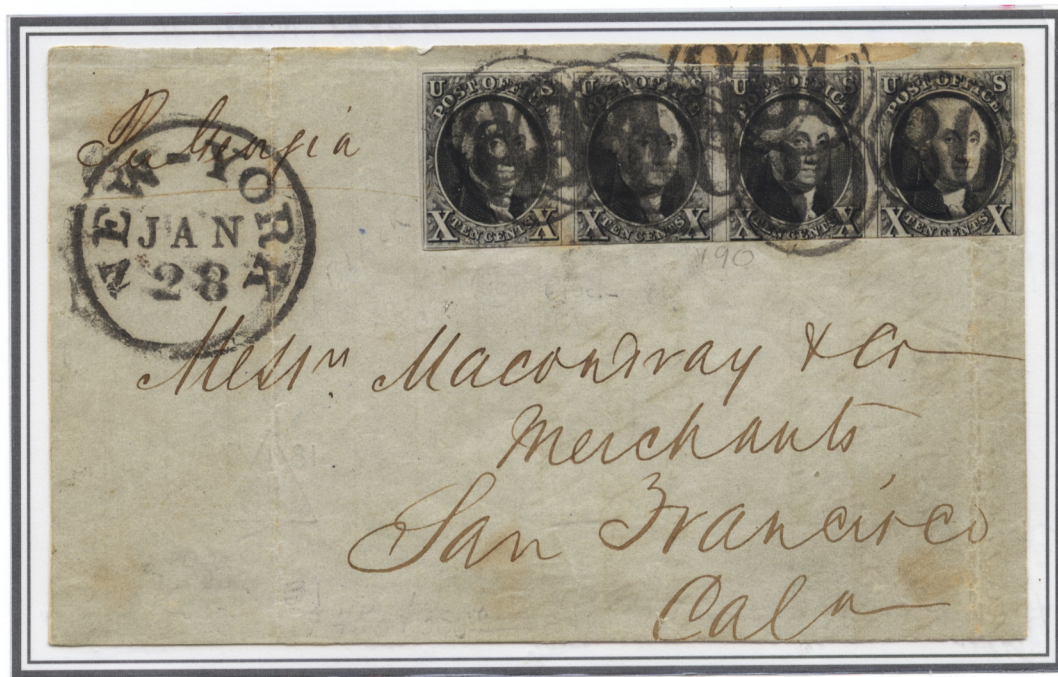 Per Georgia
NEW-YORK
JAN
28
U S
POST OFFICE
X TEN CENTS X
U S
POST OFFICE
X TEN CENTS X
U S
POST OFFICE
X TEN CENTS X
U S
POST OFFICE
X TEN CENTS X
190
Messrs Macondray & Co
Merchants
San Francisco
Cala